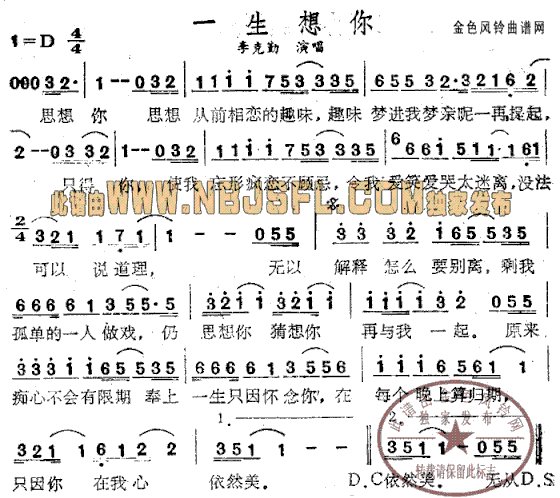 一 生 想 你
1=D 4/4
李克勤 演唱
金色风铃曲谱网
00032· 1--032 111i753335 65532·32162
思想 你 思想 从前相恋的趣味,趣味 梦进我梦亲呢一再提起,
2--0332 1--032 111i753335 6661511·161
只得 你, 使我 忘形疯恋不顾忌,令我 爱笑爱哭太迷离,没法
此谱由WWW.NBJSFL.COM独家发布
2/4 321 171 1-- --055 33 32 165535
可以 说道理, 无以 解释 怎么 要别离,剩我
66661355·5 321i321i 111i32 1--055
孤单的一人 做戏,仍 思想你 猜想你 再与我 一起。 原来
3331165535 6666133556 11116561
痴心不会有限期 奉上 一生只因怀念你,在 每个 晚上算归期,
1. 2.
321 1661 351 1-- 351 1--055
只因你 在我心 依然美。 D.C依然美。 无从D.S
此谱由金色风铃网
独家发布
转载请保留此标志